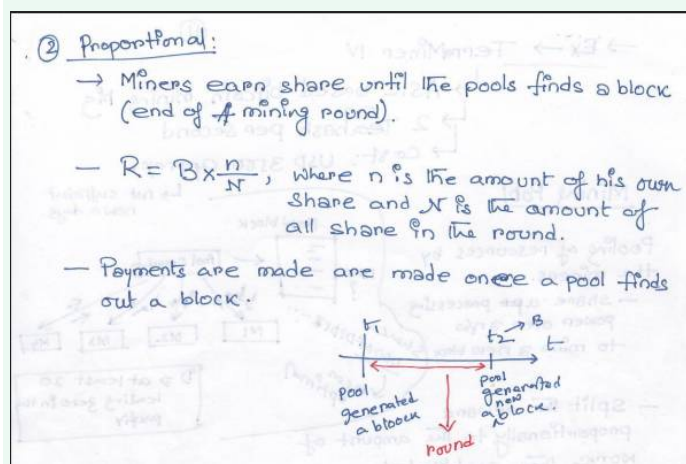 ② Proportional:
→ Miners earn share until the pools finds a block
(end of A mining round).
— R = B × n/N, where n is the amount of his own
share and N is the amount of
all share in the round.
— Payments are made are made once a pool finds
out a block.
t₁
t₂ → B
t
pool
generated
a block
pool
generated
new
a block
round